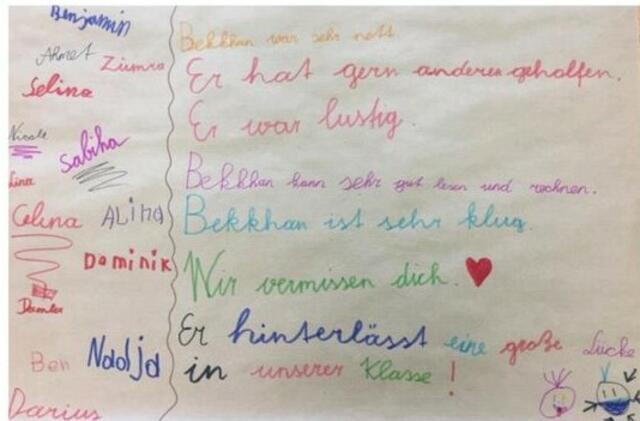 Benjamin
Ahmet Zümra
Selina
Nicole
Sabiha
Lina
Celina ALiNa
Dominik
Ben Nadja
Darius
Bekkhan war sehr nett.
Er hat gern anderen geholfen.
Er war lustig.
Bekkhan kann sehr gut lesen und rechnen.
Bekkhan ist sehr klug.
Wir vermissen dich.
Er hinterlässt eine große Lücke
in unserer Klasse!